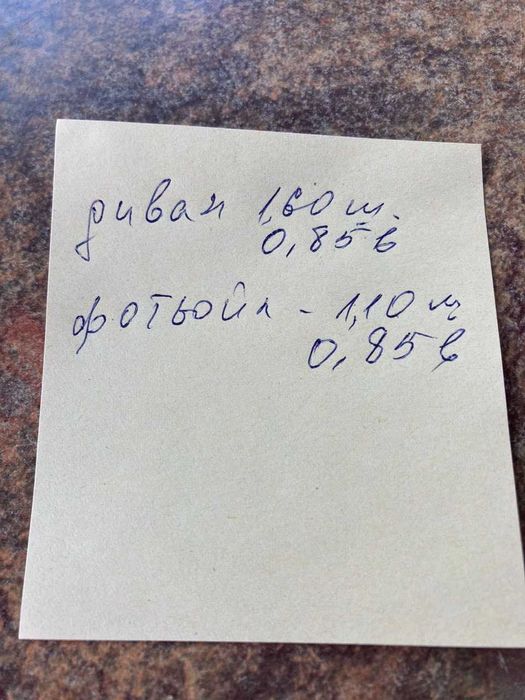 диван 1,60 ш.
0,85 в
фотьойл - 1,10 ш
0,85 в